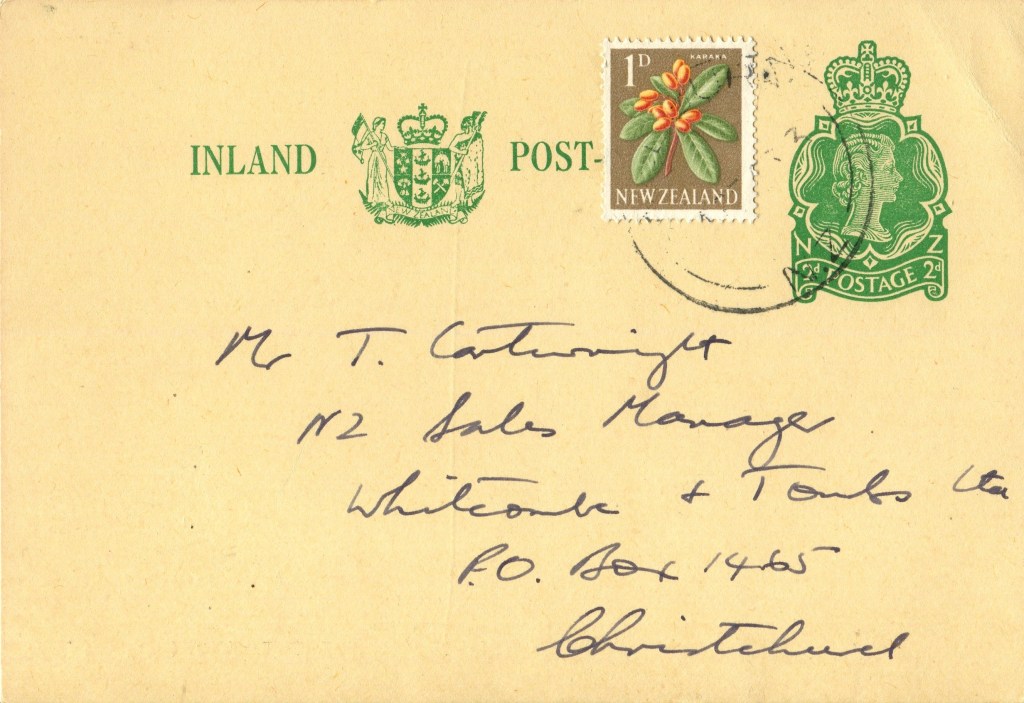 INLAND POST-
NEW ZEALAND
1D KARAKA
NEW ZEALAND
N Z
2d POSTAGE 2d
N.Z.
Mr T. Cartwright
NZ Sales Manager
Whitcombe & Tombs Ltd
P.O. Box 1465
Christchurch